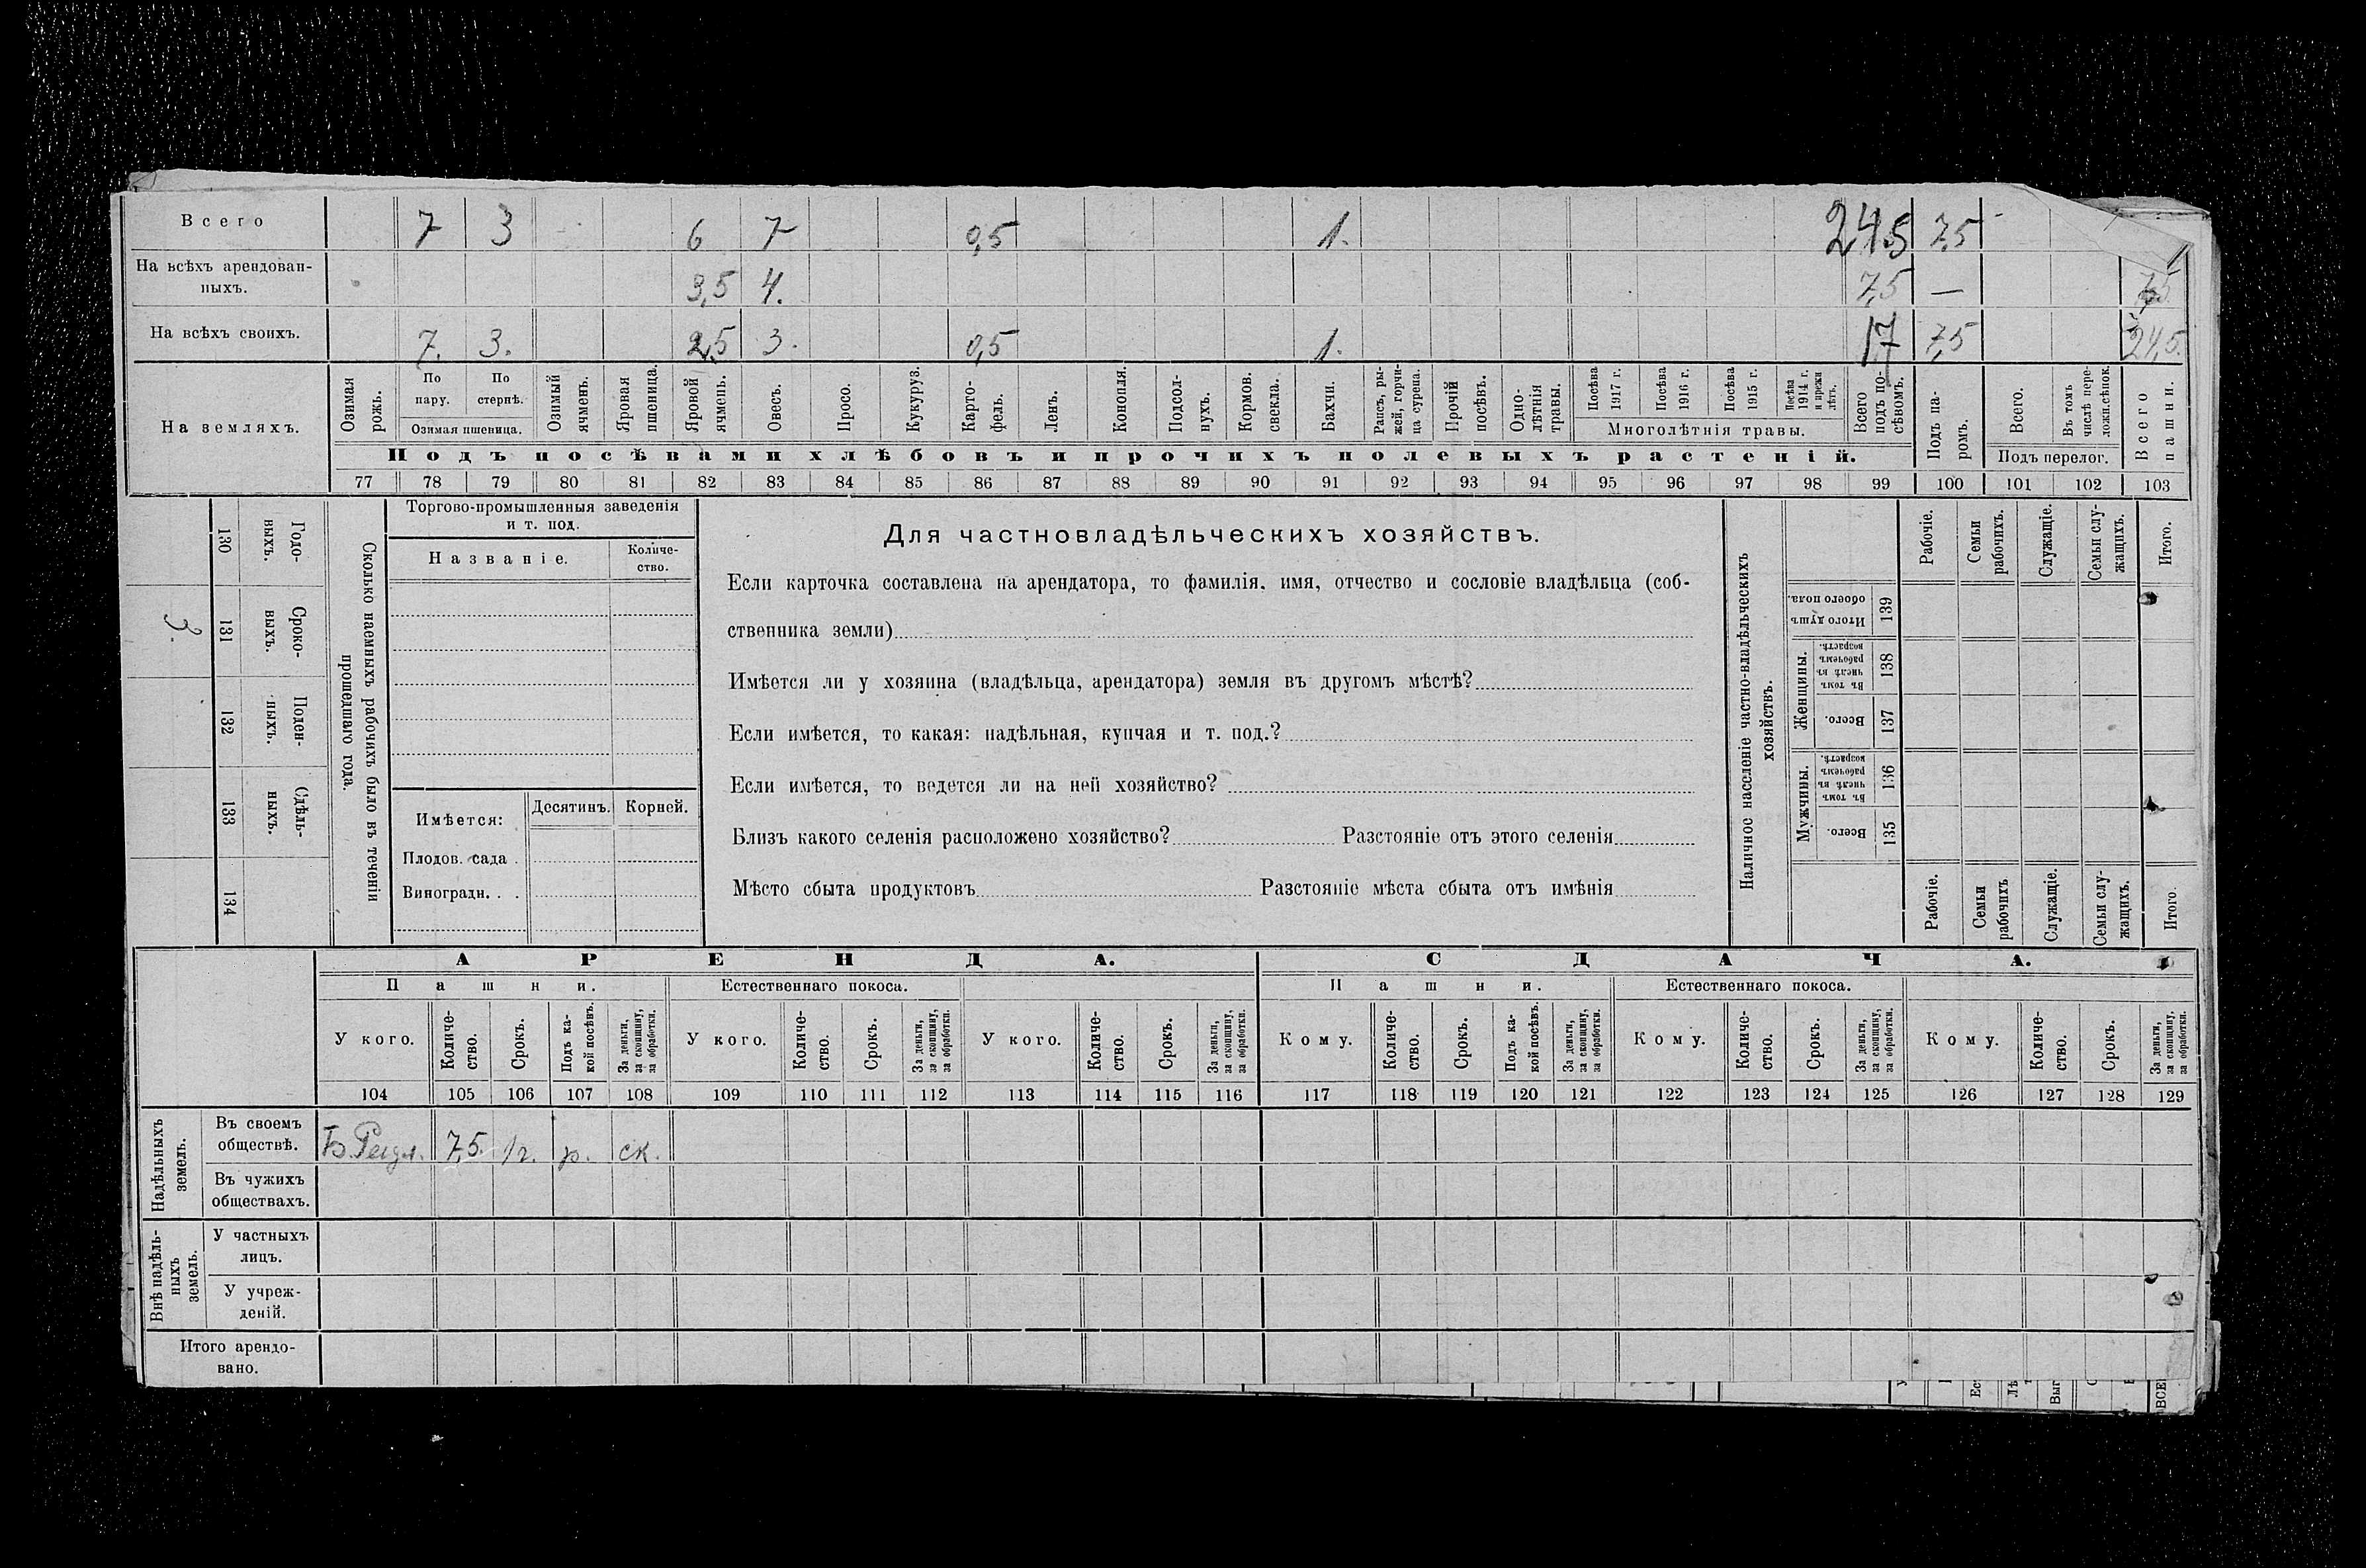 Всего 7 3 6 7 0,5 1. 24,5 7,5
На всѣхъ арендован-
ныхъ. 3,5 4. 7,5 — 7,5
На всѣхъ своихъ. 7. 3. 2,5 3. 0,5 1. 17 7,5 24,5.
На земляхъ.
Озимая рожь.
По пару.
По стернѣ.
Озимая пшеница.
Озимый ячмень.
Яровая пшеница.
Яровой ячмень.
Овесъ.
Просо.
Кукуруз.
Карто-
фель.
Ленъ.
Конопля.
Подсол-
нухъ.
Кормов.
свекла.
Бахчи.
Рапсъ, ры-
жей, горчи-
ца сурепа.
Прочій посѣвъ.
Одно-
лѣтнія
травы.
Посѣва 1917 г.
Посѣва 1916 г.
Посѣва 1915 г.
Посѣва 1914 г. и прежн лѣтъ.
Многолѣтнія травы.
Всего подъ по-
сѣвомъ.
Подъ па-
ромъ.
Всего.
Въ томъ числѣ пере-
ложн.сѣнок.
Подъ перелог.
Всего пашни.
Подъ посѣвами хлѣбовъ и прочихъ полевыхъ растеній.
77 78 79 80 81 82 83 84 85 86 87 88 89 90 91 92 93 94 95 96 97 98 99 100 101 102 103
Сколько наемныхъ рабочихъ было въ теченіи
прошедшаго года.
Годо-
выхъ.
130
Сроко-
выхъ.
131
3.
Поден-
ныхъ.
132
Сдѣль-
ныхъ.
133
134
Торгово-промышленныя заведенія
и т. под.
Названіе.
Количе-
ство.
Имѣется:
Десятинъ.
Корней.
Плодов. сада .
Виноградн. . .
Для частновладѣльческихъ хозяйствъ.
Если карточка составлена на арендатора, то фамилія, имя, отчество и сословіе владѣльца (соб-
ственника земли)
Имѣется ли у хозяина (владѣльца, арендатора) земля въ другомъ мѣстѣ?
Если имѣется, то какая: надѣльная, купчая и т. под.?
Если имѣется, то ведется ли на ней хозяйство?
Близъ какого селенія расположено хозяйство? Разстояніе отъ этого селенія
Мѣсто сбыта продуктовъ Разстояніе мѣста сбыта отъ имѣнія
Наличное населеніе частно-владѣльческихъ
хозяйствъ.
Рабочіе.
Семьи рабочихъ.
Служащіе.
Семьи слу-
жащихъ.
Итого.
Итого душъ обоего пола.
139
Женщины.
Въ томъ числѣ въ рабочемъ возрастѣ.
138
Всего.
137
Мужчины.
Въ томъ числѣ въ рабочемъ возрастѣ.
136
Всего.
135
Рабочіе.
Семьи рабочихъ
Служащіе.
Семьи слу-
жащихъ.
Итого.
АРЕНДА. СДАЧА.
Пашни. Естественнаго покоса. Пашни. Естественнаго покоса.
У кого.
Количе-
ство.
Срокъ.
Подъ ка-
кой посѣвъ.
За деньги,
за скопщину,
за обработки.
У кого.
Количе-
ство.
Срокъ.
За деньги,
за скопщину,
за обработки.
У кого.
Количе-
ство.
Срокъ.
За деньги,
за скопщину,
за обработки.
Кому.
Количе-
ство.
Срокъ.
Подъ ка-
кой посѣвъ.
За деньги,
за скопщину,
за обработки.
Кому.
Количе-
ство.
Срокъ.
За деньги,
за скопщину,
за обработки.
Кому.
Количе-
ство.
Срокъ.
За деньги,
за скопщину,
за обработки.
104 105 106 107 108 109 110 111 112 113 114 115 116 117 118 119 120 121 122 123 124 125 126 127 128 129
Надѣльныхъ
земель.
Въ своемъ
обществѣ. 7,5. 1г. р. ск.
Въ чужихъ
обществахъ.
Внѣ надѣль-
ныхъ
земель.
У частныхъ
лицъ.
У учреж-
деній.
Итого арендо-
вано.